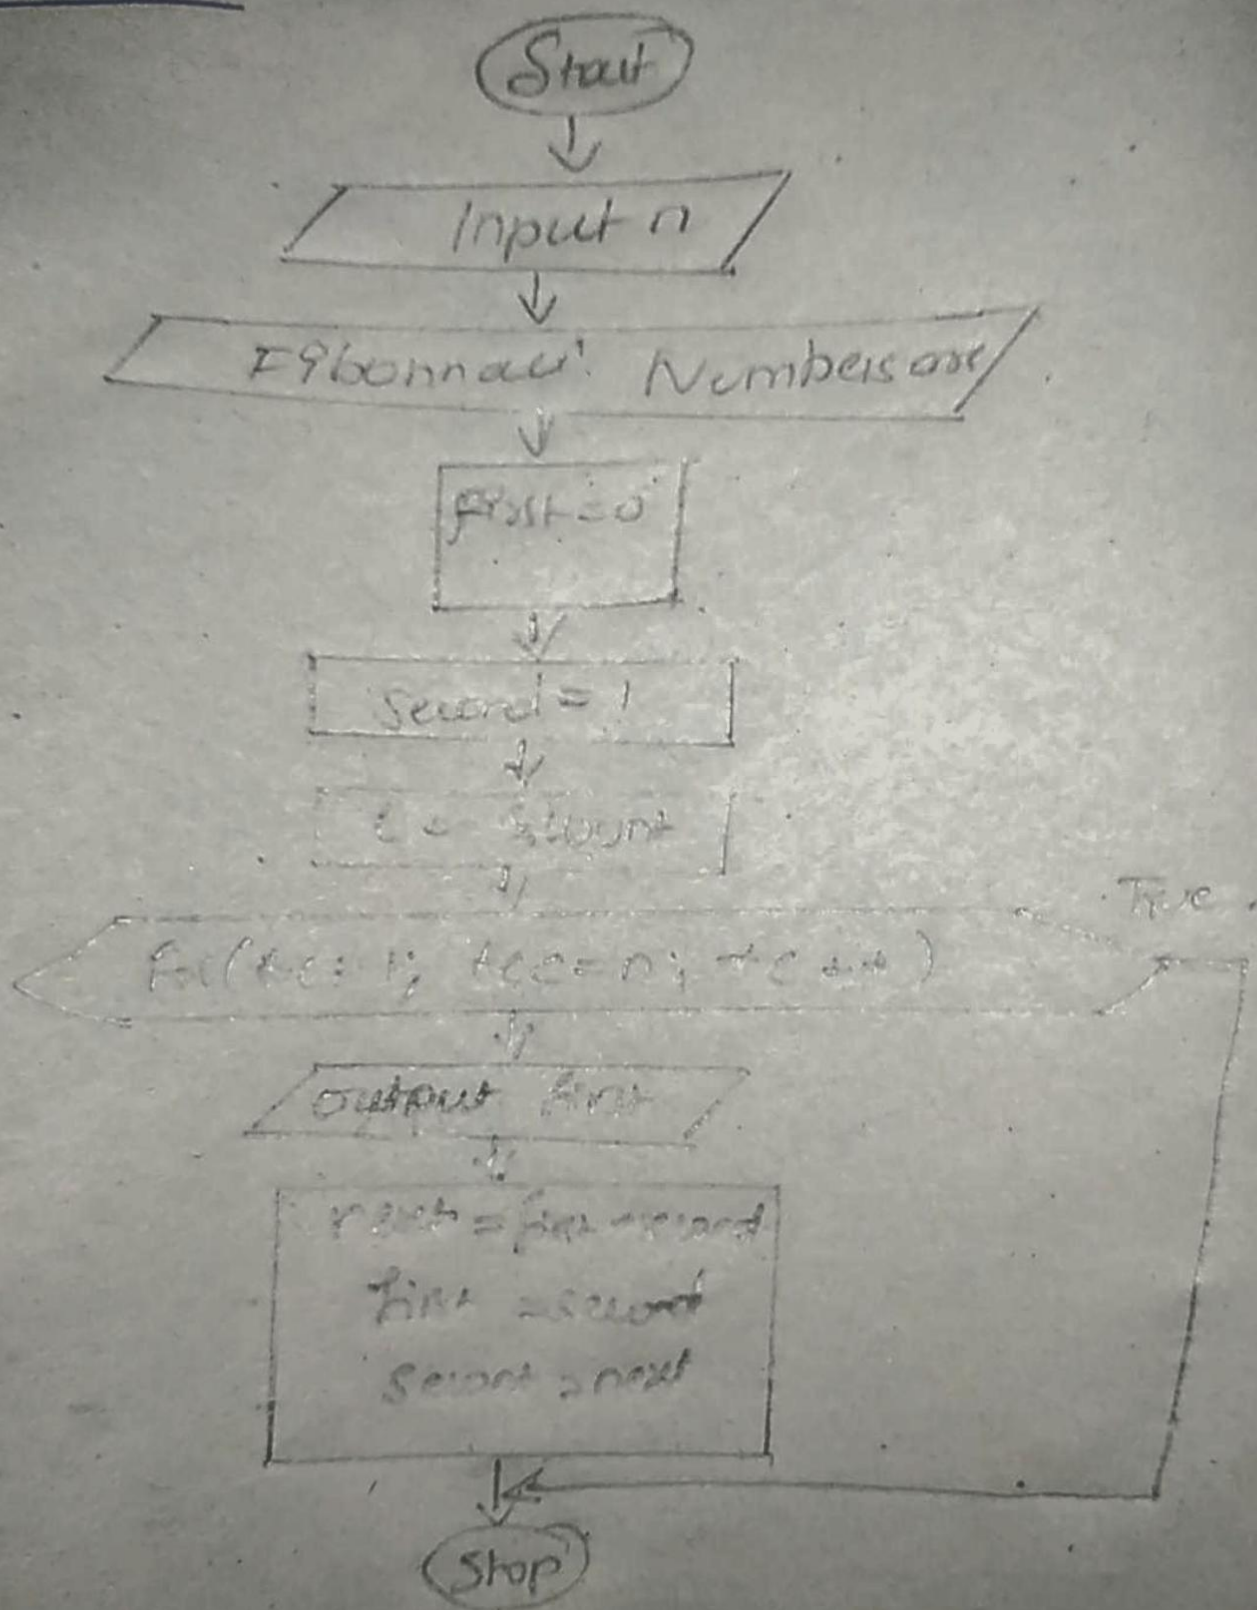 Start
Input n
Fibonnaci Numbers are
first = 0
second = 1
count
True
for( = n;
output first
next = first second
first = second
second = next
Stop